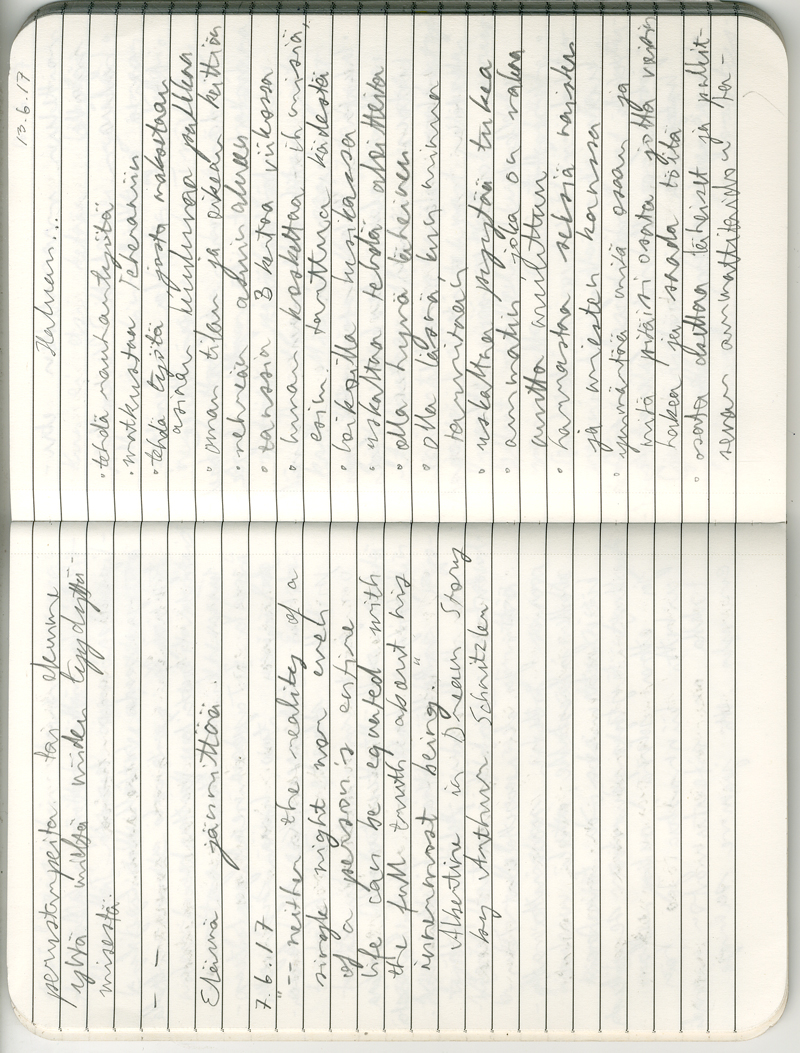 perustarpeita tai olemme
yhtä mieltä niiden tyydyttä-
misestä.
- -
Elämä jännittää.
7.6.17
"-- neither the reality of a
single night nor even
of a person's entire
life can be equated with
the full truth about his
innermost being."
Albertine in Dream Story
by Arthur Schnitzler
13.6.17
Haluan...
◦ tehdä rauhantyötä
◦ matkustaa Teheraniin
◦ tehdä työtä josta maksetaan
asiaan kuuluvaa palkkaa
◦ oman tilan ja oikean keittiön
◦ vehreän alueen
◦ tanssia 3 kertaa viikossa
◦ koskettaa ihmisiä,
esim. tarttua kädestä
◦ leikkiä
◦ uskaltaa tehdä aloitteita
◦ olla hyvä läheinen
◦ olla läsnä, kun minua
tarvitaan
◦ uskaltaa pyytää tukea
◦ ammatin joka on vakaa
mutta
◦ harrastaa seksiä naisten
ja miesten kanssa
◦ ymmärtää mitä osaan ja
mitä pitäisi osata jotta voisin
hakea ja saada töitä
◦ osata auttaa läheiset ja
seuraan ammattitaidon ta-